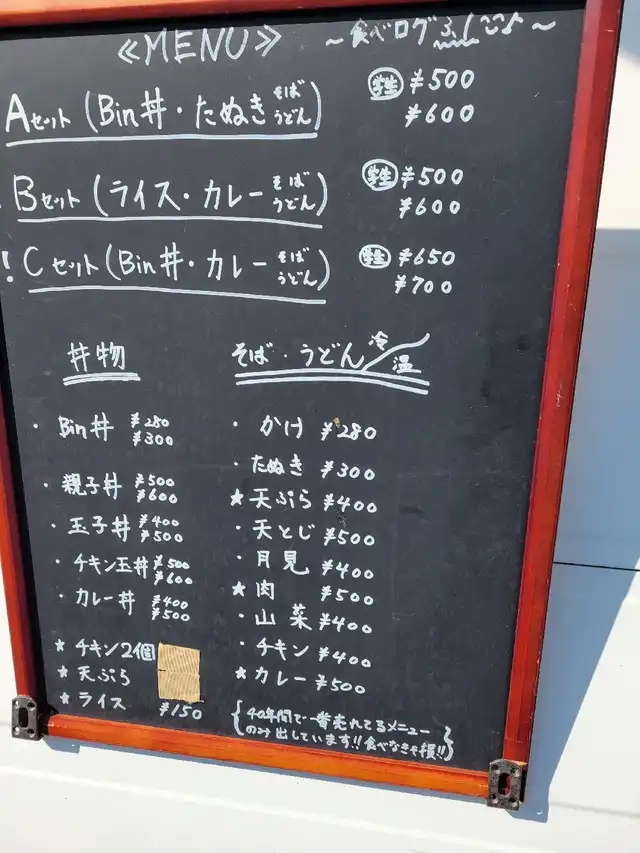 ≪MENU≫
~食べログふしぎ♪~
Aセット(Bin丼・たぬきそばうどん) 学生 ¥500
¥600
Bセット(ライス・カレーそばうどん) 学生 ¥500
¥600
! Cセット(Bin丼・カレーそばうどん) 学生 ¥650
¥700
丼物
・Bin丼 ¥280
¥300
・親子丼 ¥500
¥600
・玉子丼 ¥400
¥500
・チキン玉丼 ¥500
¥600
・カレー丼 ¥400
¥500
★チキン2個
★天ぷら
★ライス ¥150
そば・うどん 冷/温
・かけ ¥280
・たぬき ¥300
★天ぷら ¥400
・天とじ ¥500
・月見 ¥400
★肉 ¥500
・山菜 ¥400
・チキン ¥400
★カレー ¥500
{40年間で一番売れてるメニュー
のみ出しています!!食べなきゃ損!!}